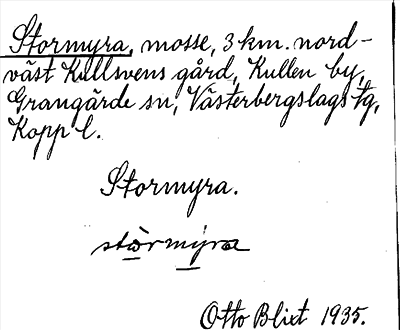 Stormyra, mosse, 3 km. nord-
väst Kullsvens gård, Kullen by,
Grangärde sn, Västerbergslags tg,
Kopp l.
Stormyra.
stòrmýra
Otto Blixt 1935.